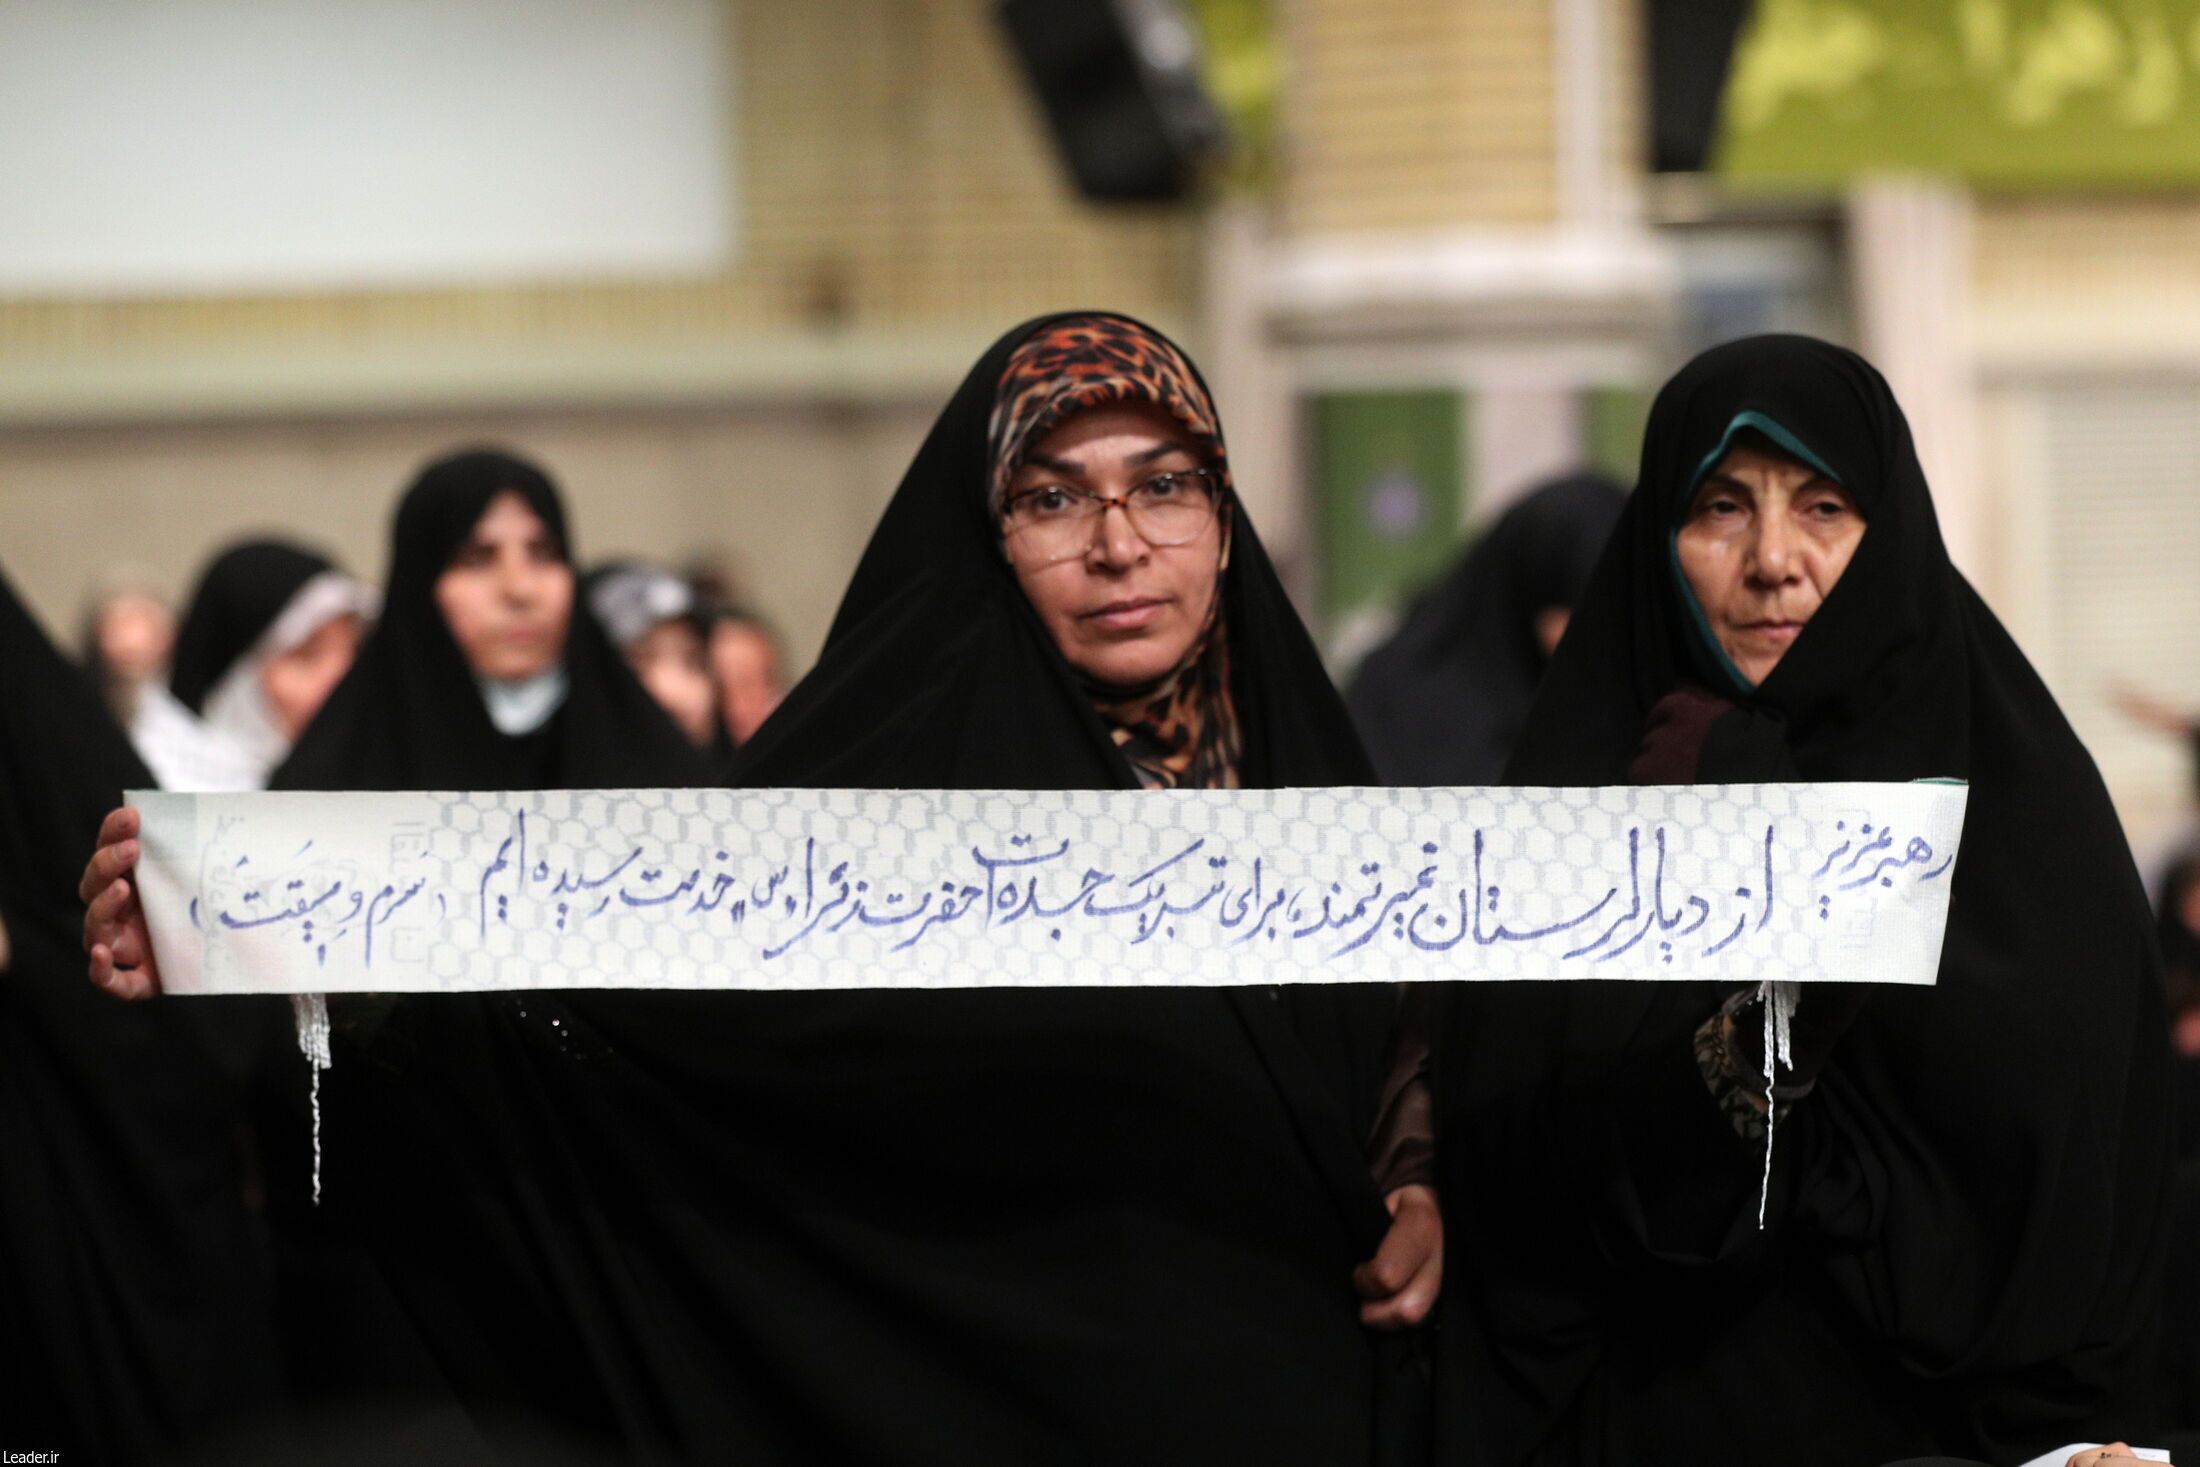 رهبر عزیز
از دیار لرستان نمیر تمند، برای تبریک جده ات حضرت زهرا "س" خدمت رسیده ایم (سَرم وِ بِیقَتَت)
Leader.ir